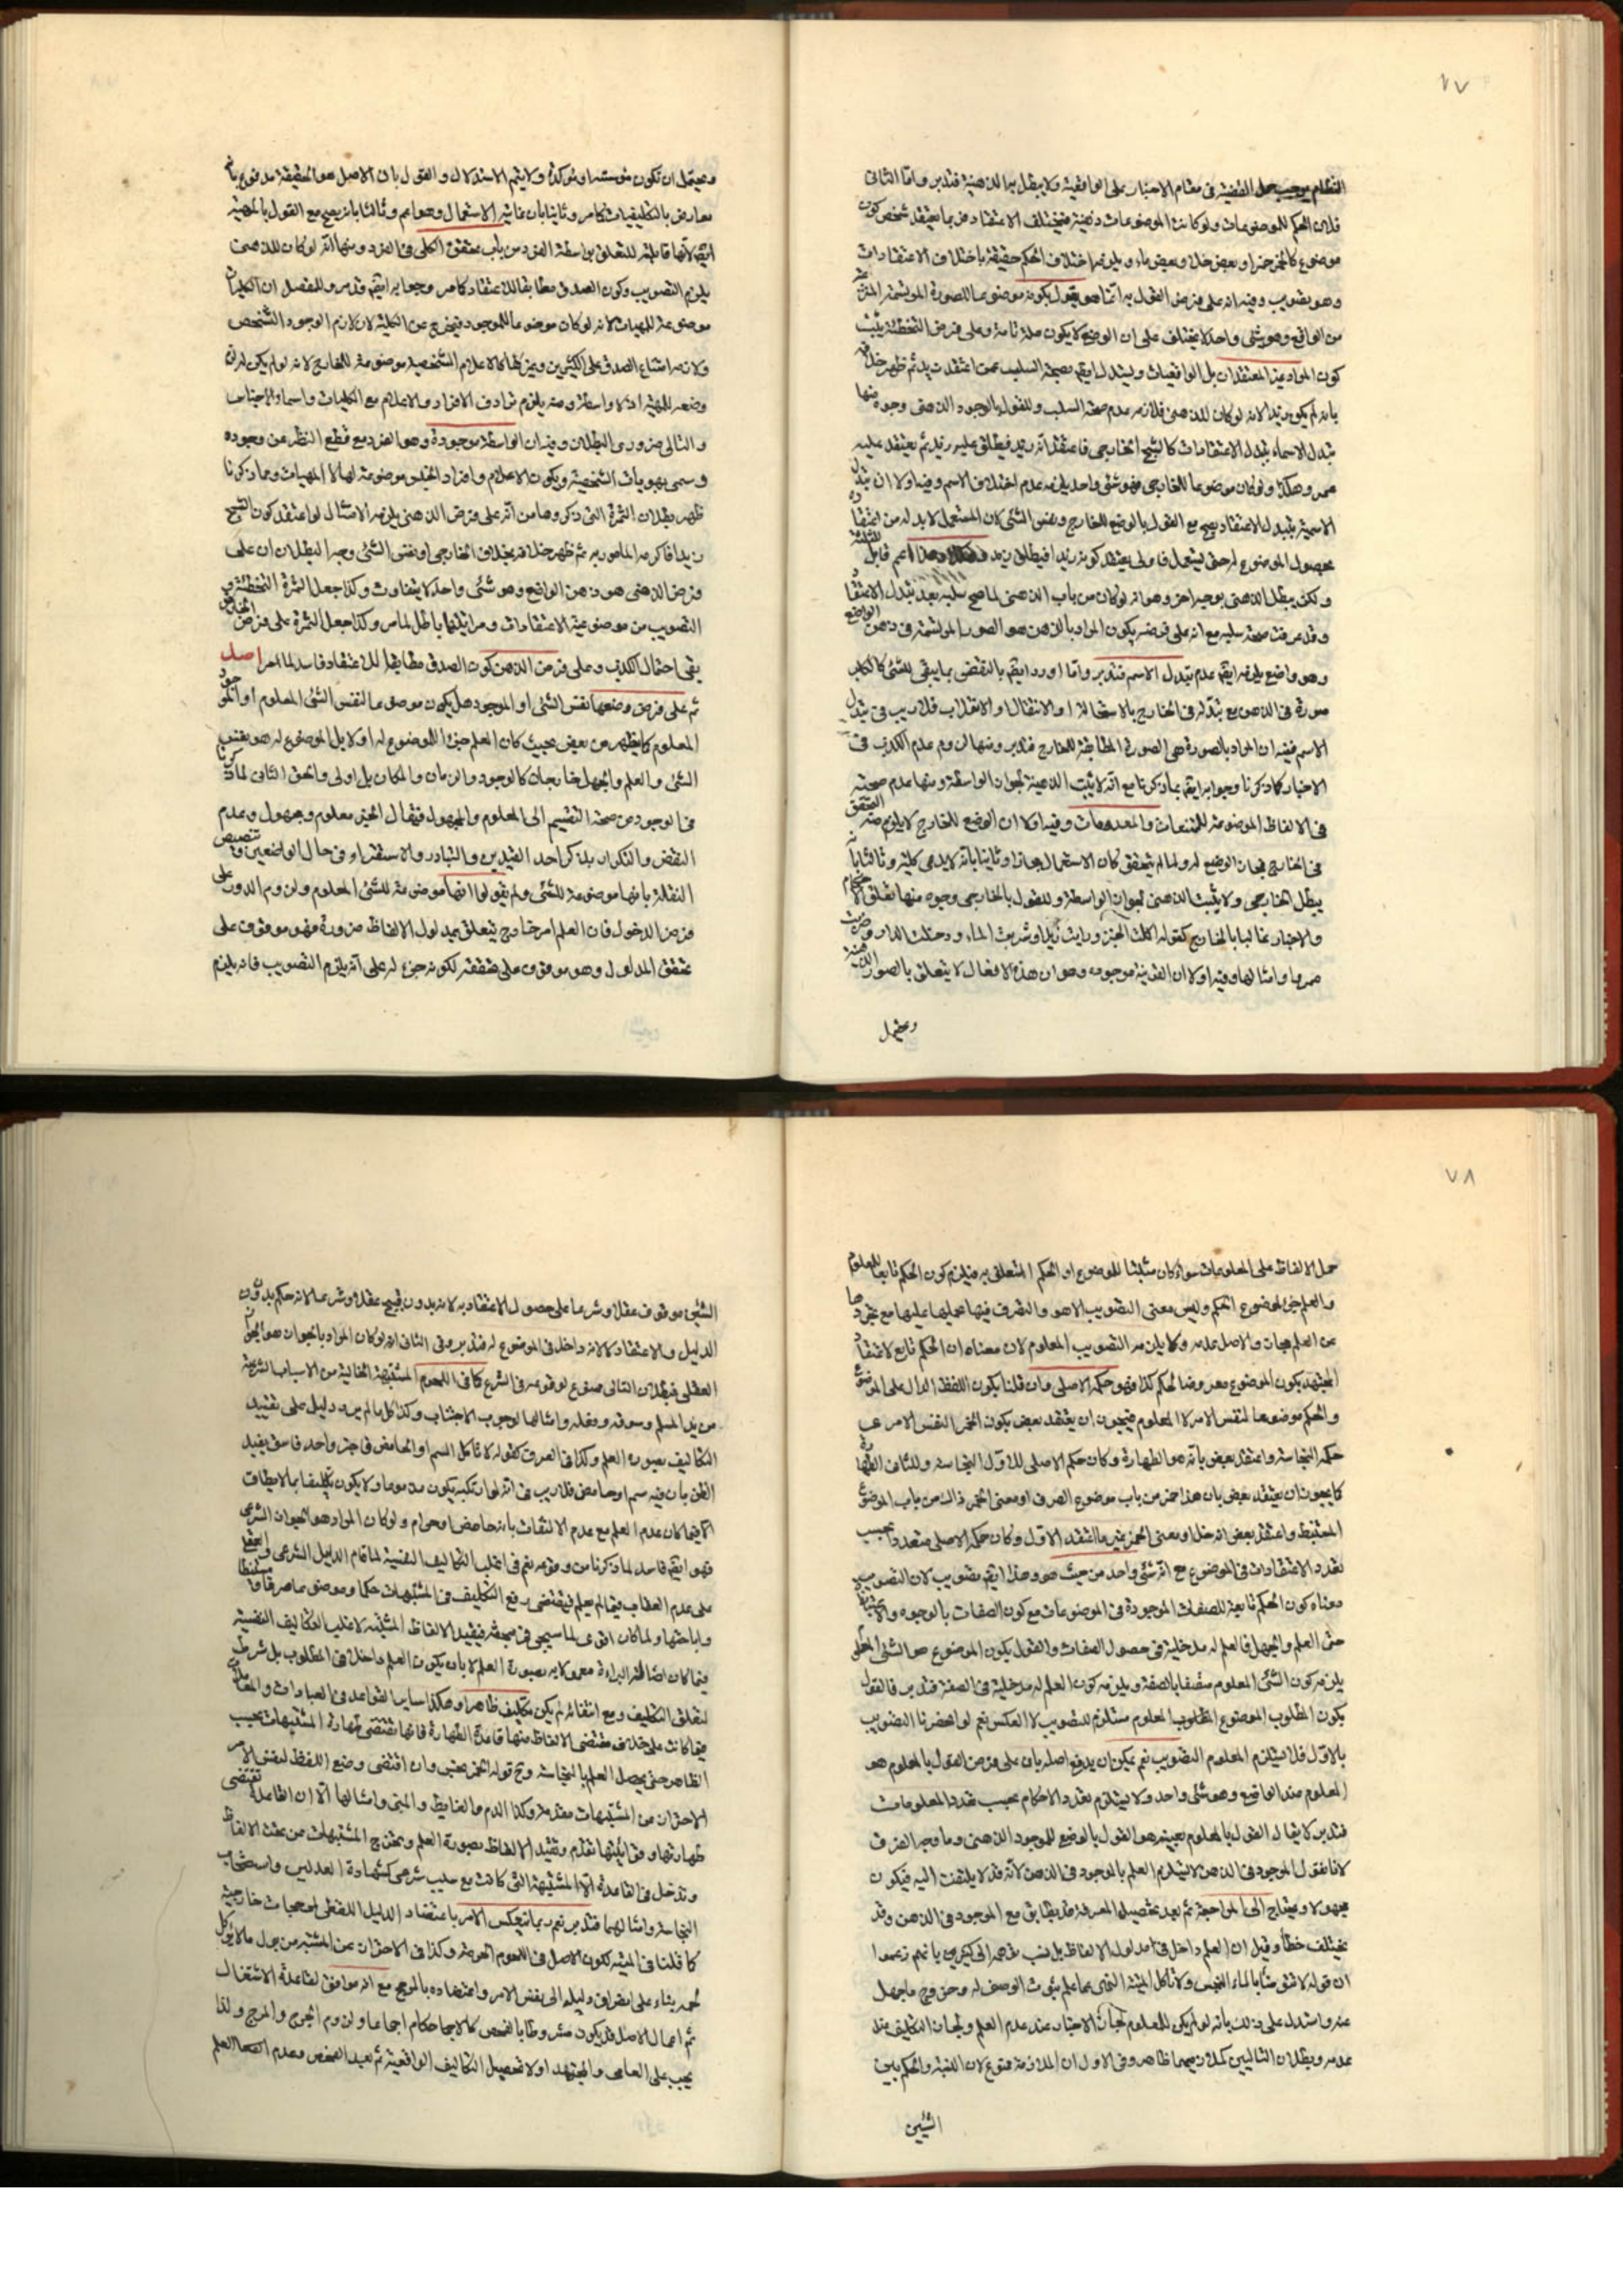 ٧٧
النظام يوجب حمل القضية في مقام الاخبار على الواقعية ولا يبطل بها الذهنية فتدبر واما الثاني
فلان الحكم للموضوعات ولو كانت الموضوعات ذهنية فيختلف الاعتقاد فربما يعتقد شخص كون
موضوع كالخمر خمرا وبعض خلا وبعض ماء ويلزمه اختلاف الحكم حقيقة باختلاف الاعتقادات
وهو تصويب وفيه انه على فرض القول به انما هو يقول بكونه موضوعا للصورة المرتسمة
من الواقع وهو شئ واحد لا يختلف على ان الوضع لا يكون علة تامة وعلى فرض التخطئة يثبت
كون المراد غير المعتقدات بل الواقعيات ويستدل ايضا بصحة السلب عمن اعتقدت زيد ثم ظهر خلافه
بانه لم يكن زيدا لانه لو كان للذهني فلازمه عدم صحة السلب وللقول بالوجود الذهني وجوه منها
تبدل الاسماء بتبدل الاعتقادات كالشبح الخارجي فاعتقد انه زيد فيطلق عليه زيد ثم يعتقد عليه
عمر وهكذا ولو كان موضوعا للخارجي فهو شئ واحد يلزمه عدم اختلاف الاسم وفيه اولا ان تبدل
الاسمية بتبدل الاعتقاد يصح مع القول بالوضع للخارج ونفس الشئ لان المستعمل لا بد له من اعتقاده
بحصول الموضوع له حتى يستعمل فاولى يعتقد كونه زيدا فيطلق زيد اعم قابل
ولكن يبطل الذهني بوجه اخر وهو انه لو كان من باب الذهني لما صح سلبه بعد تبدل الاعتقاد
وقد عرفت صحة سلبه مع انه على فرضه يكون المراد بالذهن هو الصورة المرتسمة في ذهن الواضع
وهو واضع يلزمه ايضا عدم تبدل الاسم فتدبر واما اورد ايضا بالنقض بما يبقى للشئ كالكلب
صورة في الذهن مع تبدله في الخارج بالاستحالة او الانتقال او الانقلاب فلا ريب في تبدل
الاسم ففيه ان المراد بالصورة هي الصورة المطابقة للخارج فتدبر ومنها لزوم عدم الكذب في
الاخبار كما ذكرنا وجوابه ايضا بما ذكرنا مع انه لا يثبت الذهنية لجواز الواسطة ومنها عدم صحته
في الالفاظ الموضوعة للممتنعات والمعدومات وفيه اولا ان الوضع للخارج لا يلزم منه التحقق
في الخارج فجاز الوضع له ولما لم يتحقق كان الاستعمال مجازا وثانيا بانه لا يدعى كلية وثالثا بانه
يبطل الخارجي ولا يثبت الذهني لجواز الواسطة وللقول بالخارجي وجوه منها تعلق الاحكام
والاخبار غالبا بالخارج كقوله اكلت الخبز ورايت زيدا وشربت الماء ودخلت الدار وضربت
عمرا وامثالها وفيه اولا ان القرينة موجودة وهو ان هذه الافعال لا يتعلق بالصور الذهنية
ويحتمل
ويحتمل ان تكون مؤسسة او مؤكدة ولا يتم الاستدلال والقول بان الاصل هو الحقيقة مدفوع بانه
معارض بالتكليفيات كما مر وثانيا بان غايته الاستعمال وهو اعم وثالثا بانه يصح مع القول بالمهية
ايضا لانها قابلة للتعلق بواسطة الفرد من باب تحقق الكلي في الفرد ومنها انه لو كان للذهني
يلزم التصويب وكون الصدق مطابقا للاعتقاد كما مر وجوابه ايضا قد مر وللمفصل ان الكليات
موضوعة للمهيات لانه لو كان موضوعا للموجود فيخرج عن الكلية لان لازم الوجود التشخص
ولازمه امتناع الصدق على الكثيرين وغيرها كالاعلام الشخصية موضوعة للخارج لانه لو لم يكن لزم
وضعه للمهية اذ لا واسطة ومنه يلزم ترادف الافراد والاعلام مع الكليات واسماء الاجناس
والتالي ضروري البطلان وفيه ان الواسطة موجودة وهو الفرد مع قطع النظر عن وجوده
ويسمى بهويات الشخصية ويكون الاعلام وافراد الجنس موضوعة لها لا المهيات ومما ذكرنا
ظهر بطلان الثمرة التي ذكروها من انه على فرض الذهني يلزمه الامتثال لو اعتقد كون الشبح
زيدا فاكرمه المامور به ثم ظهر خلافه بخلاف الخارجي او نفس الشئ وجه البطلان ان على
فرض الذهني هو ذهن الواقع وهو شئ واحد لا يتفاوت وكذا جعل الثمرة التخطئة و
التصويب من موضوعية الاعتقادات ومرايتها باطل لما مر وكذا جعل الثمرة على فرض الخارجي
بقى احتمال الكذب وعلى فرض الذهن كون الصدق مطابقا للاعتقاد فاسد لما مر اصل
ثم على فرض وضعها نفس الشئ او الموجود هل يكون موضوعا لنفس الشئ المعلوم او الموجود
المعلوم كما يظهر من بعض بحيث كان العلم جزءا للموضوع له او لا بل الموضوع له هو نفس
الشئ والعلم والجهل خارجان كالوجود والزمان والمكان بل اولى والحق الثاني لما ذكرنا
في الوجود من صحة التقسيم الى المعلوم والمجهول فيقال الخبز معلوم ومجهول وعدم
النقض والتكرار بذكر احد القيدين والتبادر والاستقراء في حال الواضعين وتنصيص
النقلة بانها موضوعة للشئ ولم يقولوا انها موضوعة للشئ المعلوم ولزوم الدور على
فرض الدخول فان العلم امر خارج يتعلق بمدلول الالفاظ ضرورة فهو موقوف على
تحقق المدلول وهو موقوف على تحققه لكونه جزء له على انه يلزم التصويب فانه يلزم
٧٨
حمل الالفاظ على المعلومات سواء كان مثبتا للموضوع او الحكم المتعلق به فيلزم كون الحكم تابعا للمعلوم
والعلم جزء لموضوع الحكم وليس معنى التصويب الا هو والتصرف فيها بحملها عليها مع تجردها
عن العلم مجاز والاصل عدمه ولا يلزمه التصويب المعلوم لان معناه ان الحكم تابع لاعتقاد
المجتهد بكون الموضوع معروضا لحكم كذا فهو حكمه الاصلي وان قلنا بكون اللفظ الدال على الموضوع
والحكم موضوعا لنفس الامر لا المعلوم فيجوز ان يعتقد بعض بكون الخمر النفس الامرية
حكمه النجاسة واعتقد بعض بانه هو الطهارة وكان حكم الاصلي للاول النجاسة وللثاني الطهارة
كما يجوز ان يعتقد بعض بان هذا خمر من باب موضوع الصرف او معنى الخمر ذلك من باب الموضوع
المستنبط واعتقد بعض انه خل او معنى الخمر غير ما اعتقد الاول وكان حكمه الاصلي متعددا بحسب
تعدد الاعتقادات في الموضوع مع انه شئ واحد من حيث هو وهذا ايضا تصويب لان التصويب
معناه كون الحكم تابعة للصفات الموجودة في الموضوعات مع كون الصفات بالوجوه والاعتبارات
حتى العلم والجهل فالعلم له مدخلية في حصول الصفات والقول بكون الموضوع هو الشئ المعلوم
يلزمه كون الشئ المعلوم متصفا بالصفة ويلزمه كون العلم له مدخلية في الصفة فتدبر فالقول
بكون المطلوب الموضوع المطلوب المعلوم مستلزم للتصويب لا العكس نعم لو انحصرنا التصويب
بالاول فلا يستلزم المعلوم التصويب نعم يمكن ان يدفع اصله بان على فرض القول بالمعلوم هو
المعلوم عند الواقع وهو شئ واحد ولا يستلزم تعدد الاحكام بحسب تعدد المعلومات
فتدبر لا يقال القول بالمعلوم بعينه هو القول بالوضع للموجود الذهني وما وجه الفرق
لانا نقول الموجود في الذهن لا يستلزم العلم بالوجود في الذهن لانه قد لا يلتفت اليه فيكون
مجهولا ويحتاج الى المراجعة ثم بعد تحصيل المعرفة قد يطابق مع الموجود في الذهن وقد
يختلف خطأ وقيل ان العلم داخل في مدلول الالفاظ بل نسب ترجمه الى كثيرين بانهم زعموا
ان قوله لا تتوضأ بالماء النجس ولا تأكل الميتة النهي عما علم ثبوت الوصف له وخروج ما جهل
عنه واستدل على ذلك بانه لو لم يكن للمعلوم لجاز الاخبار عند عدم العلم ولجاز التكليف عند
عدمه وبطلان التاليين كملازمتهما ظاهر وفي الاول ان الملازمة ممنوع لان النسبة والحكم بين
الشيئين
الشيئين موقوف عقلا وشرعا على حصول الاعتقاد به لانه بدونه قبيح عقلا وشرعا لانه حكم بدون
الدليل والاعتقاد لا انه داخل في الموضوع له فتدبر وفي الثاني انه لو كان المراد بالجواز هو الجواز
العقلي فبطلان التالي ممنوع لوقوعه في الشرع كما في اللحوم المشتبهة الخالية من الاسباب الشرعية
من يد المسلم وسوقه وفعله وامثالها لوجوب الاجتناب وكذا كل ما لم يرد دليل على تقييد
التكاليف بصورة العلم وكذا في العرف كقوله لا تأكل السم او الحامض في خبز واحد فاسق يفيد
الظن بان فيه سم او حامض فلا ريب في انه لو ارتكبه يكون مذموما ولا يكون تكليفا بما لا يطاق
الا فيما كان عدم العلم مع عدم الالتفات بانه حامض او حرام ولو كان المراد هو الجواز الشرعي
فهو ايضا فاسد لما ذكرنا من وقوعه نعم في اغلب التكاليف النفسية لما قام الدليل الشرعي والعقلي
على عدم العقاب فيما لم يعلم فيقتضى رفع التكليف في المشتبهات حكما وموضوعا صرفا او مستنبطا
واباحتها ولما كان اقوى لما سيجئ في مبحثه فيقيد الالفاظ المثبتة لاغلب التكاليف النفسية
فيما كان اصالة البراءة معمولا به بصورة العلم لا بان يكون العلم داخلا في المطلوب بل شرط
لتعلق التكليف ومع انتفائه لم يكن تكليف ظاهرا وهكذا ساير القواعد في العبادات والمعاملات
فيما كانت على خلاف مقتضى الالفاظ منها قاعدة الطهارة فانها تقتضى طهارة المشتبهات بحسب
الظاهر حتى يحصل العلم بالنجاسة ونحو قوله الخمر نجس وان اقتضى وضع اللفظ لنفس الامر
الاحتراز من المشتبهات مقدمة وكذا الدم والغايط والمني وامثالها الا ان القاعدة تقتضى
طهارتها وقابليتها تقدم وتقيد الالفاظ بصورة العلم وتخرج المشتبهات من تحت الالفاظ
وتدخل في القاعدة الا المشتبهة التي كانت مع سبب شرعي كشهادة العدلين واستصحاب
النجاسة وامثالهما فتدبر نعم ربما ينعكس الامر باعتضاد الدليل اللفظي لمرجحات خارجية
كما قلنا في الميتة لكون الاصل في اللحوم الحرمة وكذا في الاحتراز عن المشتبه من بول ما لا يؤكل
لحمه بناء على انصراف دليله الى نفس الامر واعتضاده بالمرجح مع انه موافق لقاعدة الاشتغال
ثم اعمال الاصل قد يكون مشروطا بالفحص كالاحكام اجماعا ولزوم الحرج والمرج ولذا
يجب على العامي والمجتهد اولا تحصيل التكاليف الواقعية ثم بعد الفحص وعدم العلم